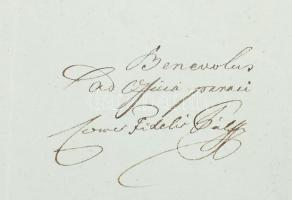 Benevolus
ad officia paratus
Comes Fidelis Pálffy